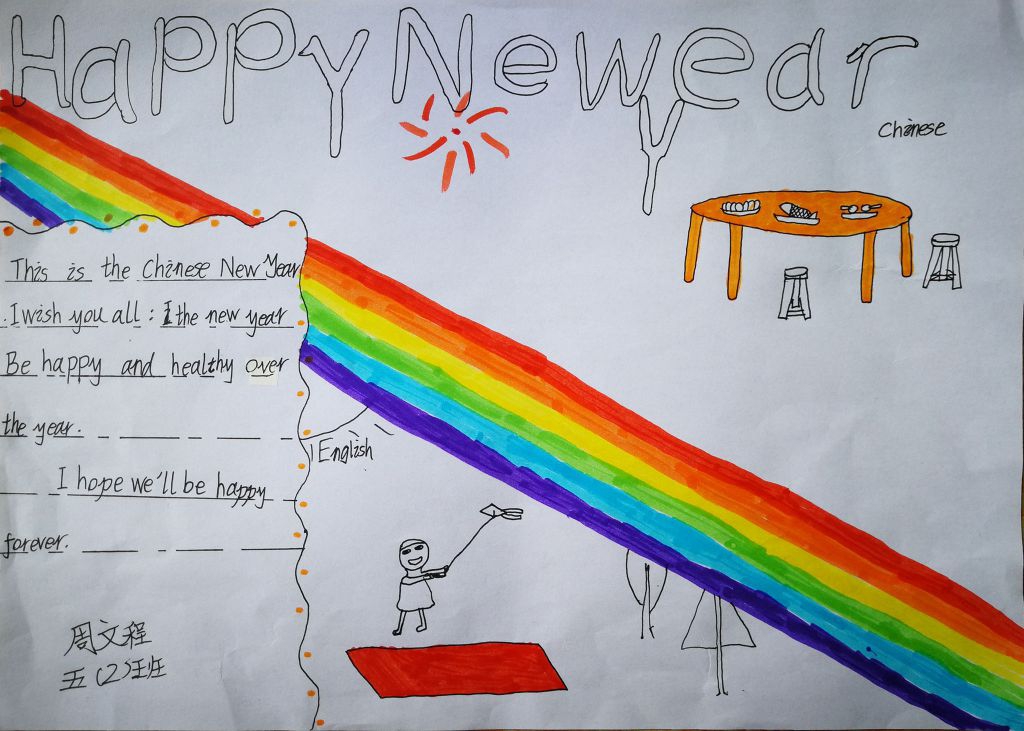 Happy New Year
Chinese
This is the Chinese New Year
. I wish you all : 1 the new year
Be happy and healthy over
the year.
English
I hope we'll be happy
forever.
周文程
五(2)班